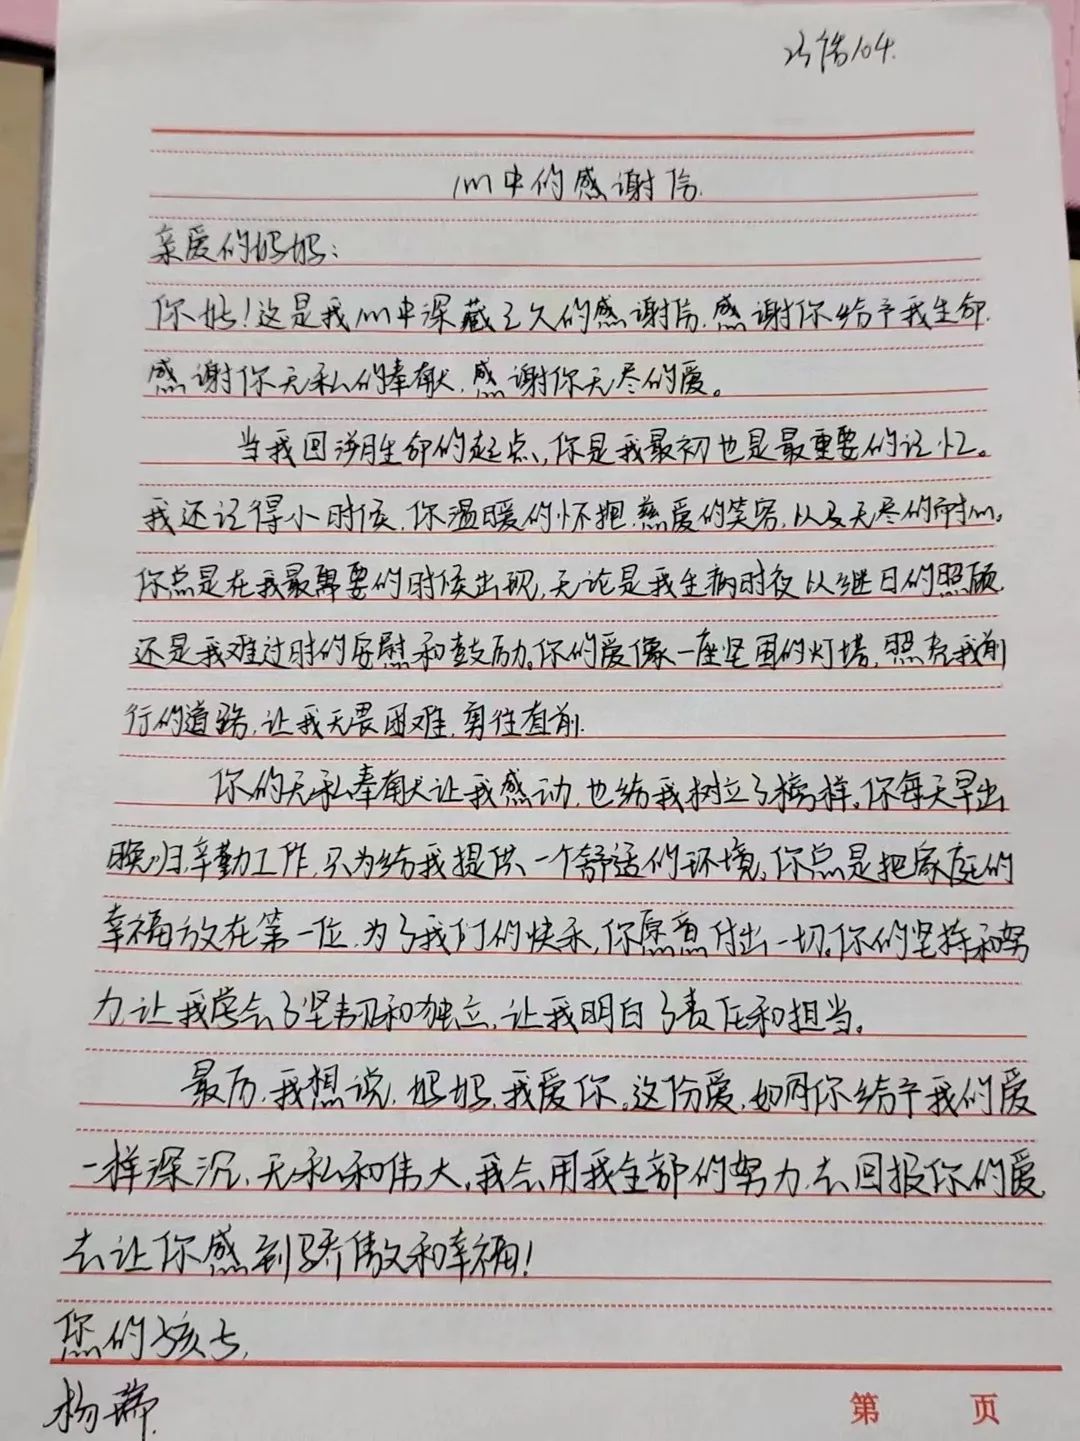 23信104.
心中的感谢信.
亲爱的妈妈:
你好!这是我心中深藏已久的感谢信.感谢你给予我生命.
感谢你无私的奉献.感谢你无尽的爱。
当我回溯生命的起点,你是我最初也是最重要的记忆。
我还记得小时候.你温暖的怀抱.慈爱的笑容,以及无尽的耐心。
你总是在我最需要的时候出现,无论是我生病时夜以继日的照顾.
还是我难过时的安慰和鼓励。你的爱像一座坚固的灯塔,照亮我前
行的道路,让我无畏困难.勇往直前.
你的无私奉献让我感动.也给我树立了榜样。你每天早出
晚归,辛勤工作.只为给我提供一个舒适的环境。你总是把家庭的
幸福放在第一位.为了我们的快乐,你愿意付出一切。你的坚持和努
力让我学会了坚韧和独立,让我明白了责任和担当。
最后.我想说.妈妈,我爱你。这份爱,如同你给予我的爱
一样深沉.无私和伟大。我会用我全部的努力.去回报你的爱,
去让你感到骄傲和幸福!
您的孩子,
杨瑞.
第 页